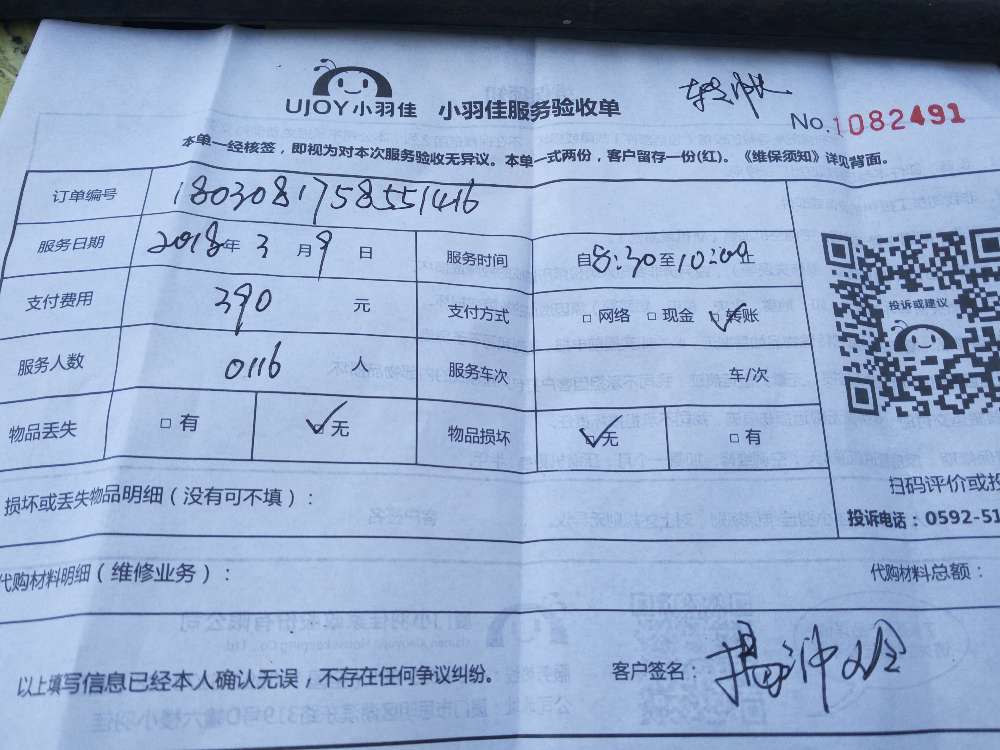 UJOY小羽佳 小羽佳服务验收单
No.1082491
本单一经核签，即视为对本次服务验收无异议。本单一式两份，客户留存一份(红)。《维保须知》详见背面。
订单编号 18030817585551416
服务日期 2018年3月9日 服务时间 自8:30至10:20止
支付费用 390元 支付方式 □网络 □现金 ☑转账
服务人数 0116人 服务车次 车/次
物品丢失 □有 ☑无 物品损坏 ☑无 □有
投诉或建议
损坏或丢失物品明细（没有可不填）：
扫码评价或投
投诉电话：0592-51
代购材料明细（维修业务）： 代购材料总额：
以上填写信息已经本人确认无误，不存在任何争议纠纷。 客户签名：